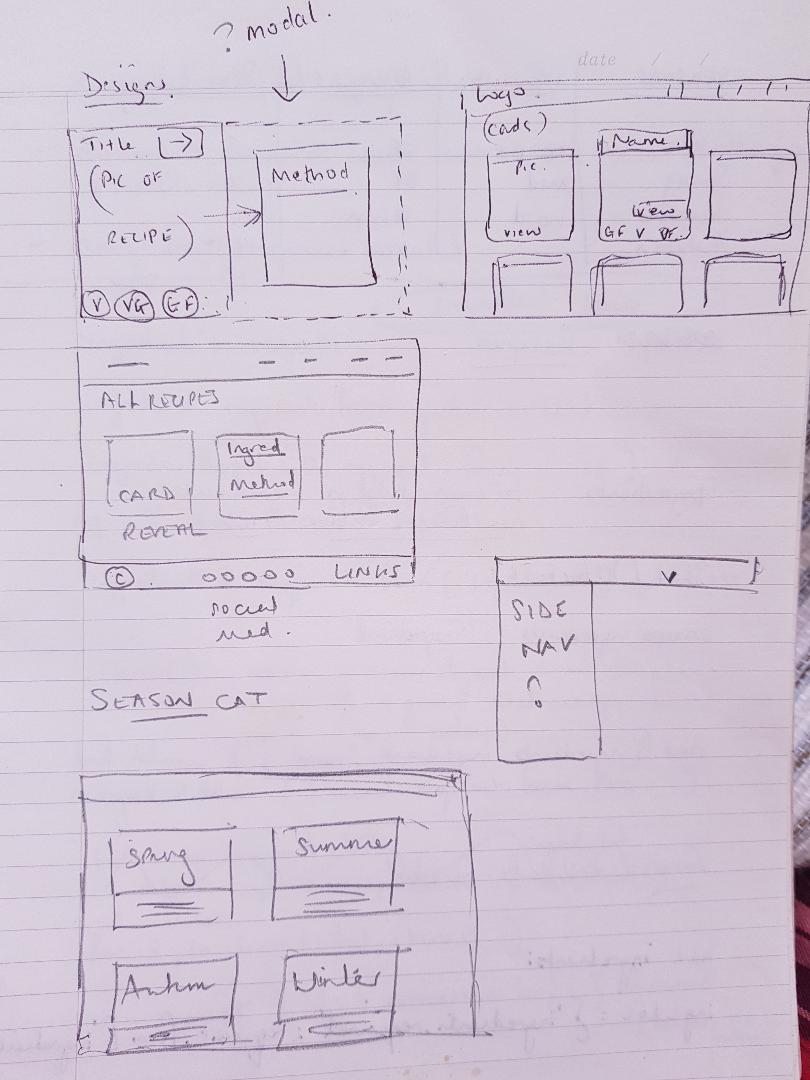 ? modal.
date / /
Designs.
Title →
(PIC OF
RECIPE)
V VG GF
Method
Logo.
(cards)
Pic.
view
Name.
view
GF V DF.
ALL RECIPES
CARD
REVEAL
Ingred
Method
C
LINKS
social
med.
SIDE
NAV
?
SEASON CAT
Spring
Summer
Autumn
Winter